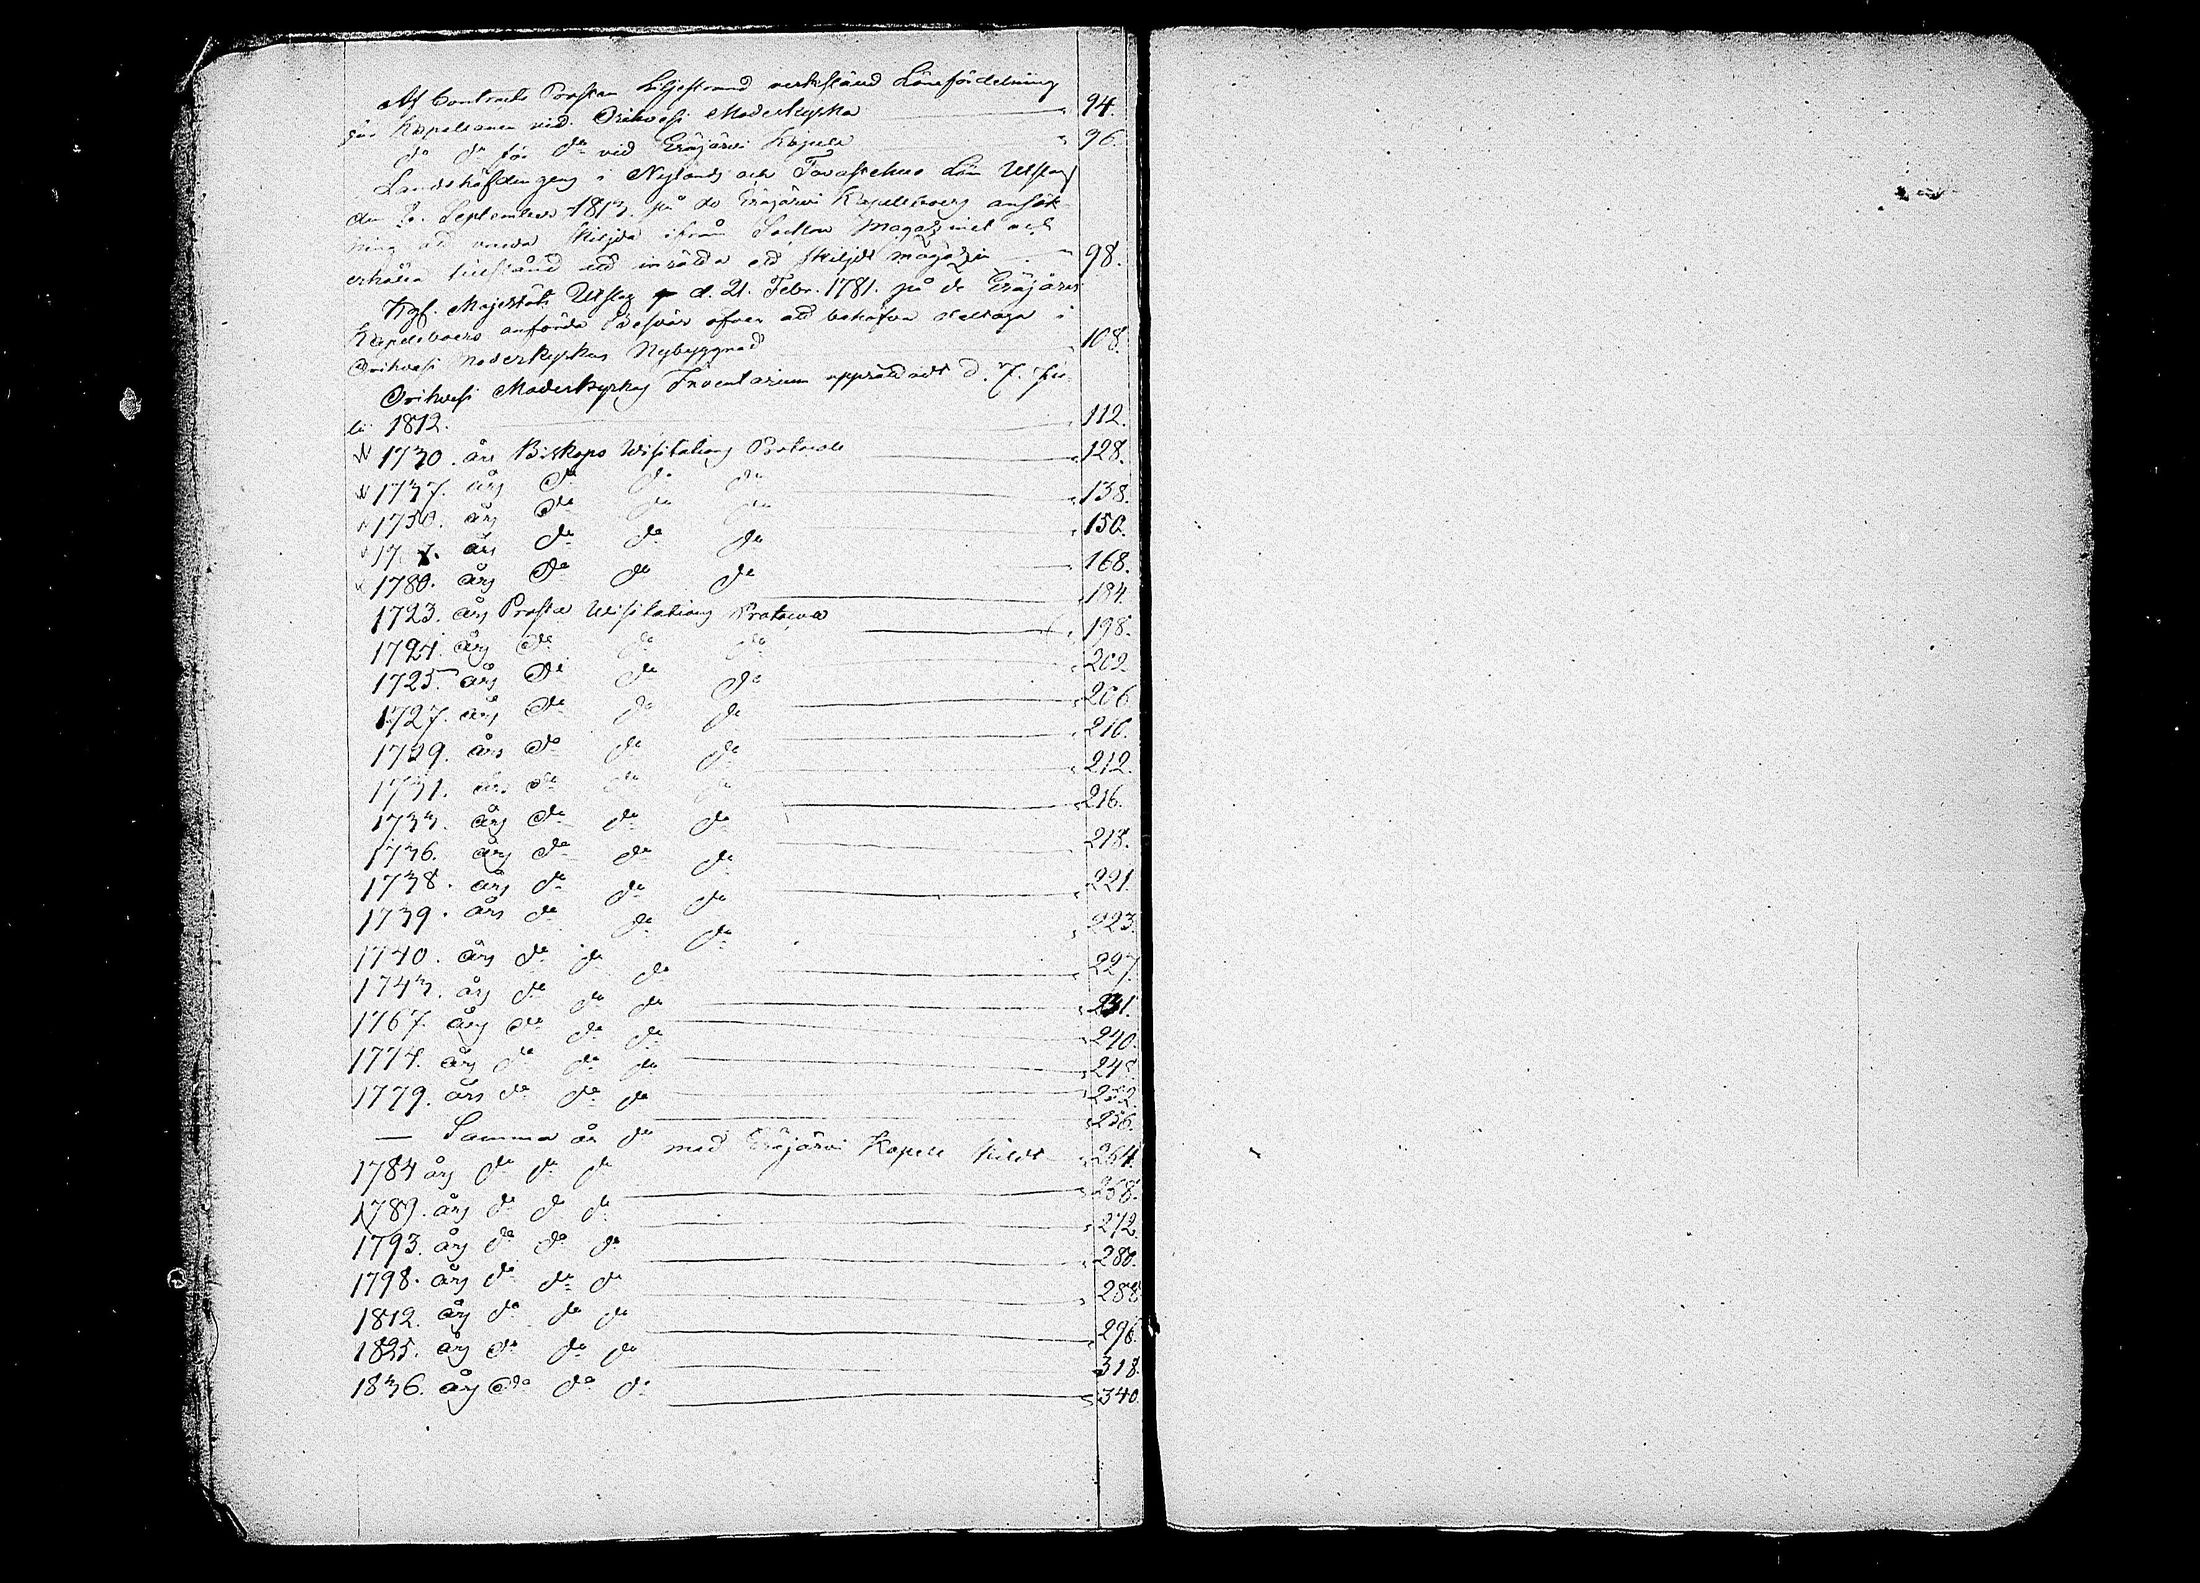 Af Contracts Prosten Liljestrand verkställd Lönefördelning
för Kapellanen vid Orihvesi Moderkyrka " 94.
do do för do vid Eräjärvi Kapell " 96.
Landshöfdingens i Nylands och Tavastehus Län Utslag
den 2. September 1813. på de Eräjärvi Kapellboers ansök-
ning att varda skiljda ifrån Socken Magazinet och
erhålla tillstånd att inrätta ett skiljdt magazin " 98.
Kgl. Majestäts Utslag d. 21. Febr. 1781. på de Eräjärvi
Kapellboers anförda Besvär öfver att behöfva deltaga i
Orihvesi moderkyrkas Nybyggnad 108.
Orihvesi Moderkyrkas Inventarium upprättadt d. 7. Ju-
lii 1812. 112.
1730. års Biskops Visitations Protocoll " 128.
1737. års do do do " 138.
1750. års do do do " 150.
års do do do 168.
1780. års do do do " 184.
1723. års Prosta Visitations Protocoll " 198.
1724. års do do do " 202.
1725. års do do do " 206.
1727. års do do do " 210.
1729. års do do do " 212.
1731. års do do do " 216.
1733. års do do do " 218.
1736. års do do do " 221.
1738. års do do do " 223.
1739. års do do do " 227.
1740. års do do do " 231.
1743. års do do do " 240.
1767. års do do do " 248.
1774. års do do do " 252.
1779. års do do do " 256.
— Samma år do med Eräjärvi Kapell hållit " 264.
1784 års do do do " 268.
1789. års do do do " 272.
1793. års do do do " 280.
1798. års do do do " 288.
1812. års do do do " 296.
1825. års do do do " 318.
1836. års do do do " 340.